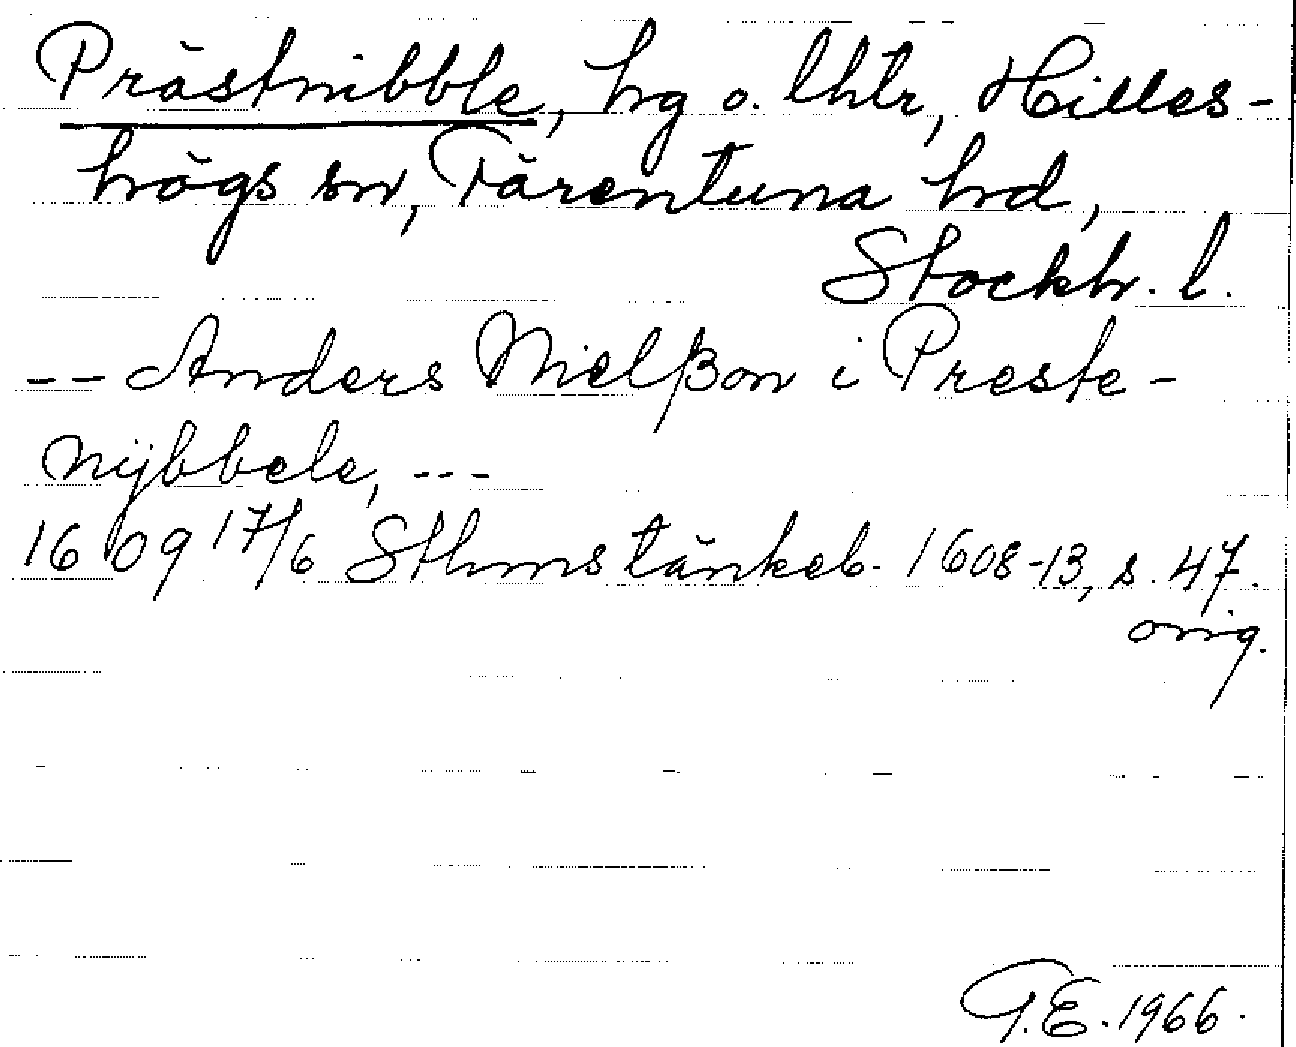 Prästnibble, hg o. lhtr, Hilles-
högs sn, Färentuna hd,
Stockh. l.
-- Anders Nielßon i Preste-
nÿbbele, ---
1609 17/6 Sthms tänkeb. 1608-13, s. 47.
orig.
G.E. 1966.